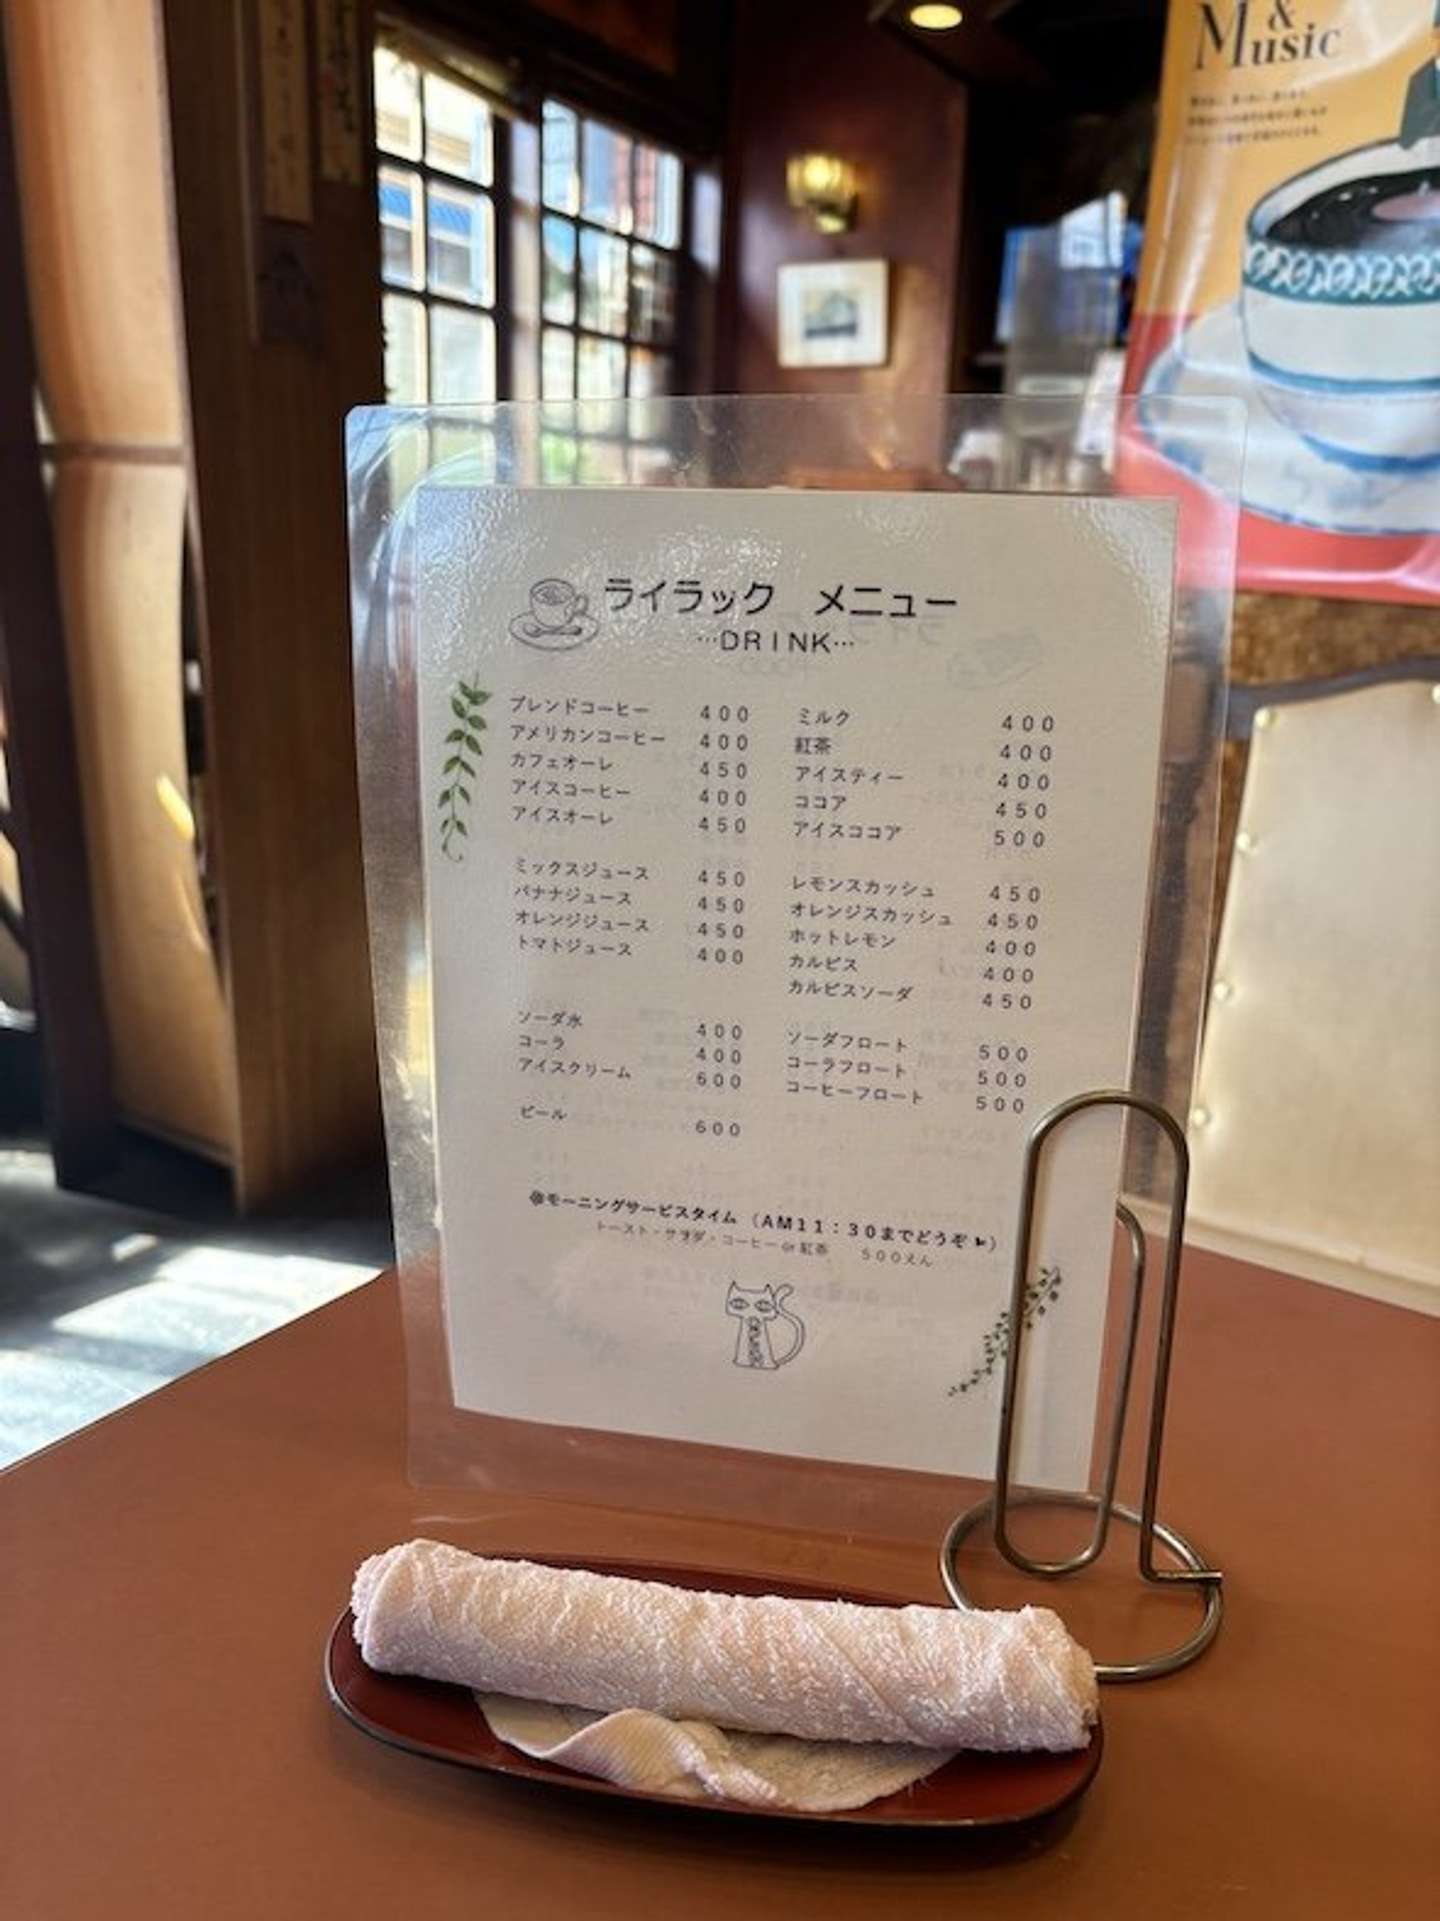 &
Music
ライラック　メニュー
…DRINK…
ブレンドコーヒー 400
アメリカンコーヒー 400
カフェオーレ 450
アイスコーヒー 400
アイスオーレ 450
ミックスジュース 450
バナナジュース 450
オレンジジュース 450
トマトジュース 400
ソーダ水 400
コーラ 400
アイスクリーム 600
ビール 600
ミルク 400
紅茶 400
アイスティー 400
ココア 450
アイスココア 500
レモンスカッシュ 450
オレンジスカッシュ 450
ホットレモン 400
カルピス 400
カルピスソーダ 450
ソーダフロート 500
コーラフロート 500
コーヒーフロート 500
モーニングサービスタイム（AM11：30までどうぞ）
トースト・サラダ・コーヒーor紅茶　500えん